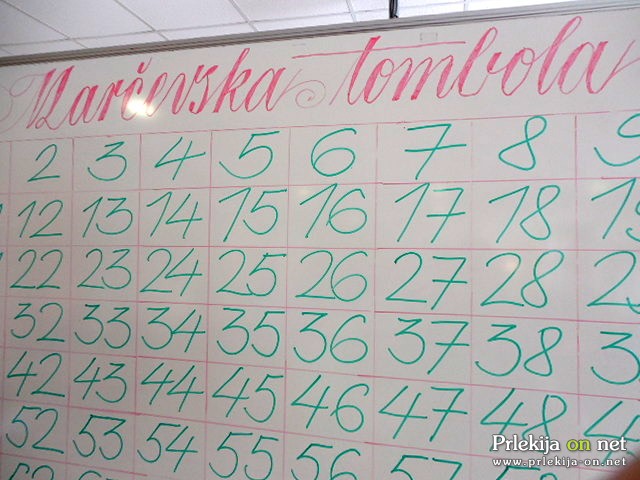 Marčevska tombola
2 3 4 5 6 7 8 9
12 13 14 15 16 17 18
22 23 24 25 26 27 28
32 33 34 35 36 37 38
42 43 44 45 46 47 48
52 53 54 55 56 57 58
Prlekija on net
www.prlekija-on.net